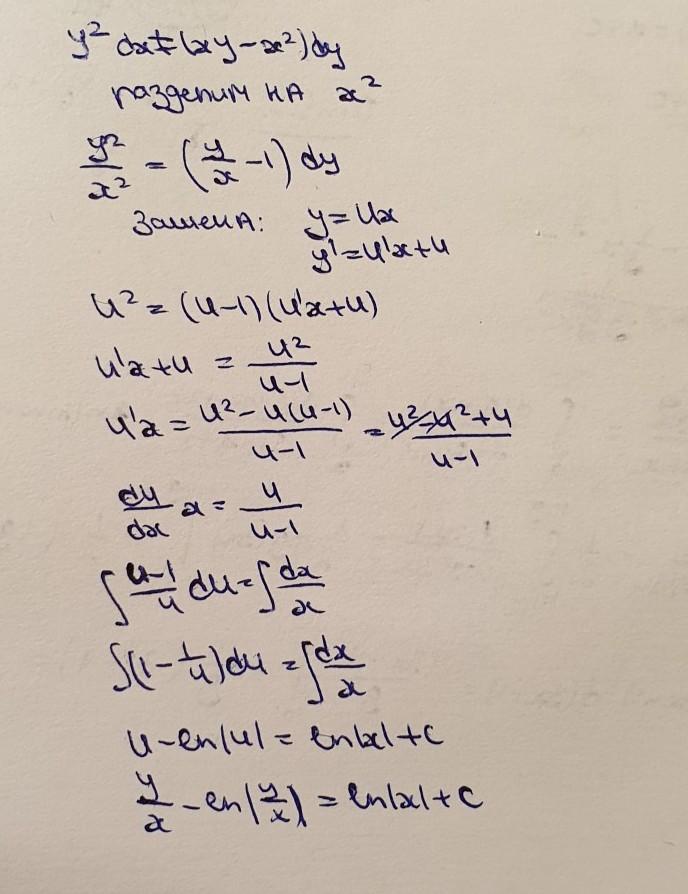 y² dx = (xy - x²) dy
разделим на x²
y²/x² = (y/x - 1) dy
замена: y = ux
y' = u'x + u
u² = (u-1)(u'x+u)
u'x + u = u²/(u-1)
u'x = (u² - u(u-1))/(u-1) = (u² - u² + u)/(u-1)
du/dx x = u/(u-1)
∫ (u-1)/u du = ∫ dx/x
∫(1 - 1/u) du = ∫ dx/x
u - ln|u| = ln|x| + c
y/x - ln|y/x| = ln|x| + c